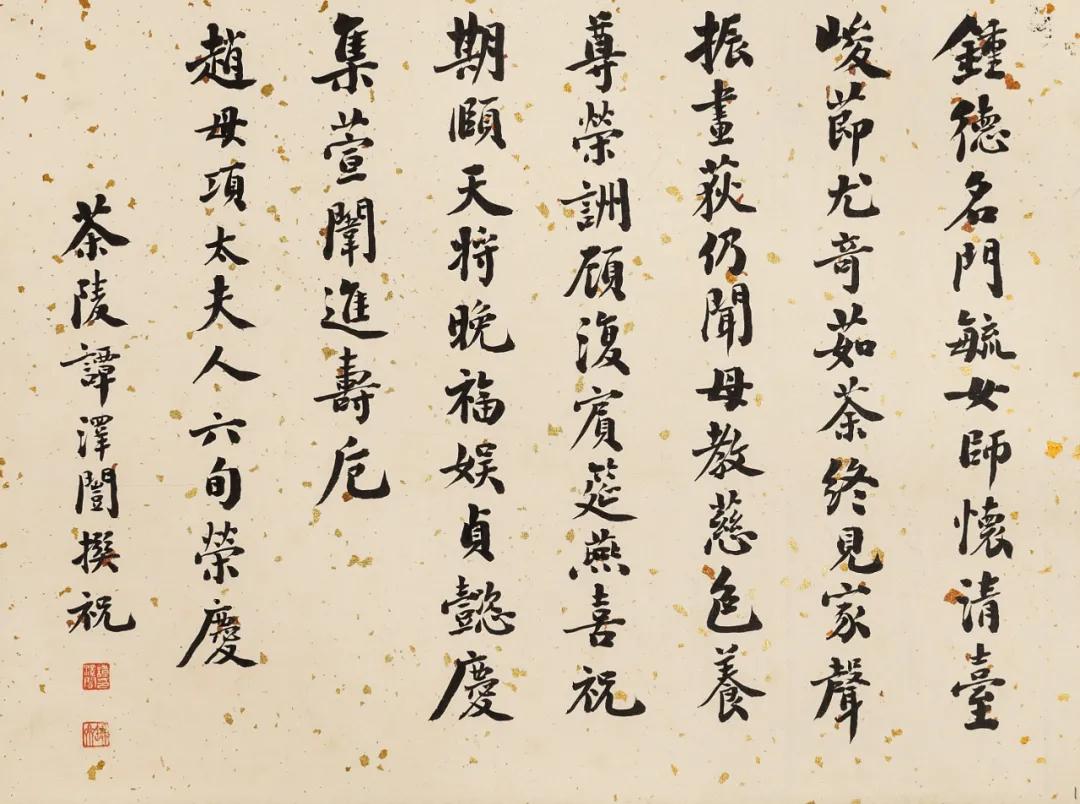 鍾德名門毓女師懷清臺
峻節尤奇茹荼終見家聲
振畫荻仍聞母教慈色養
尊榮詶顧復賓筵燕喜祝
期頤天將晚福娛貞懿慶
集萱闈進壽卮
趙母項太夫人六旬榮慶
茶陵譚澤闓撰祝